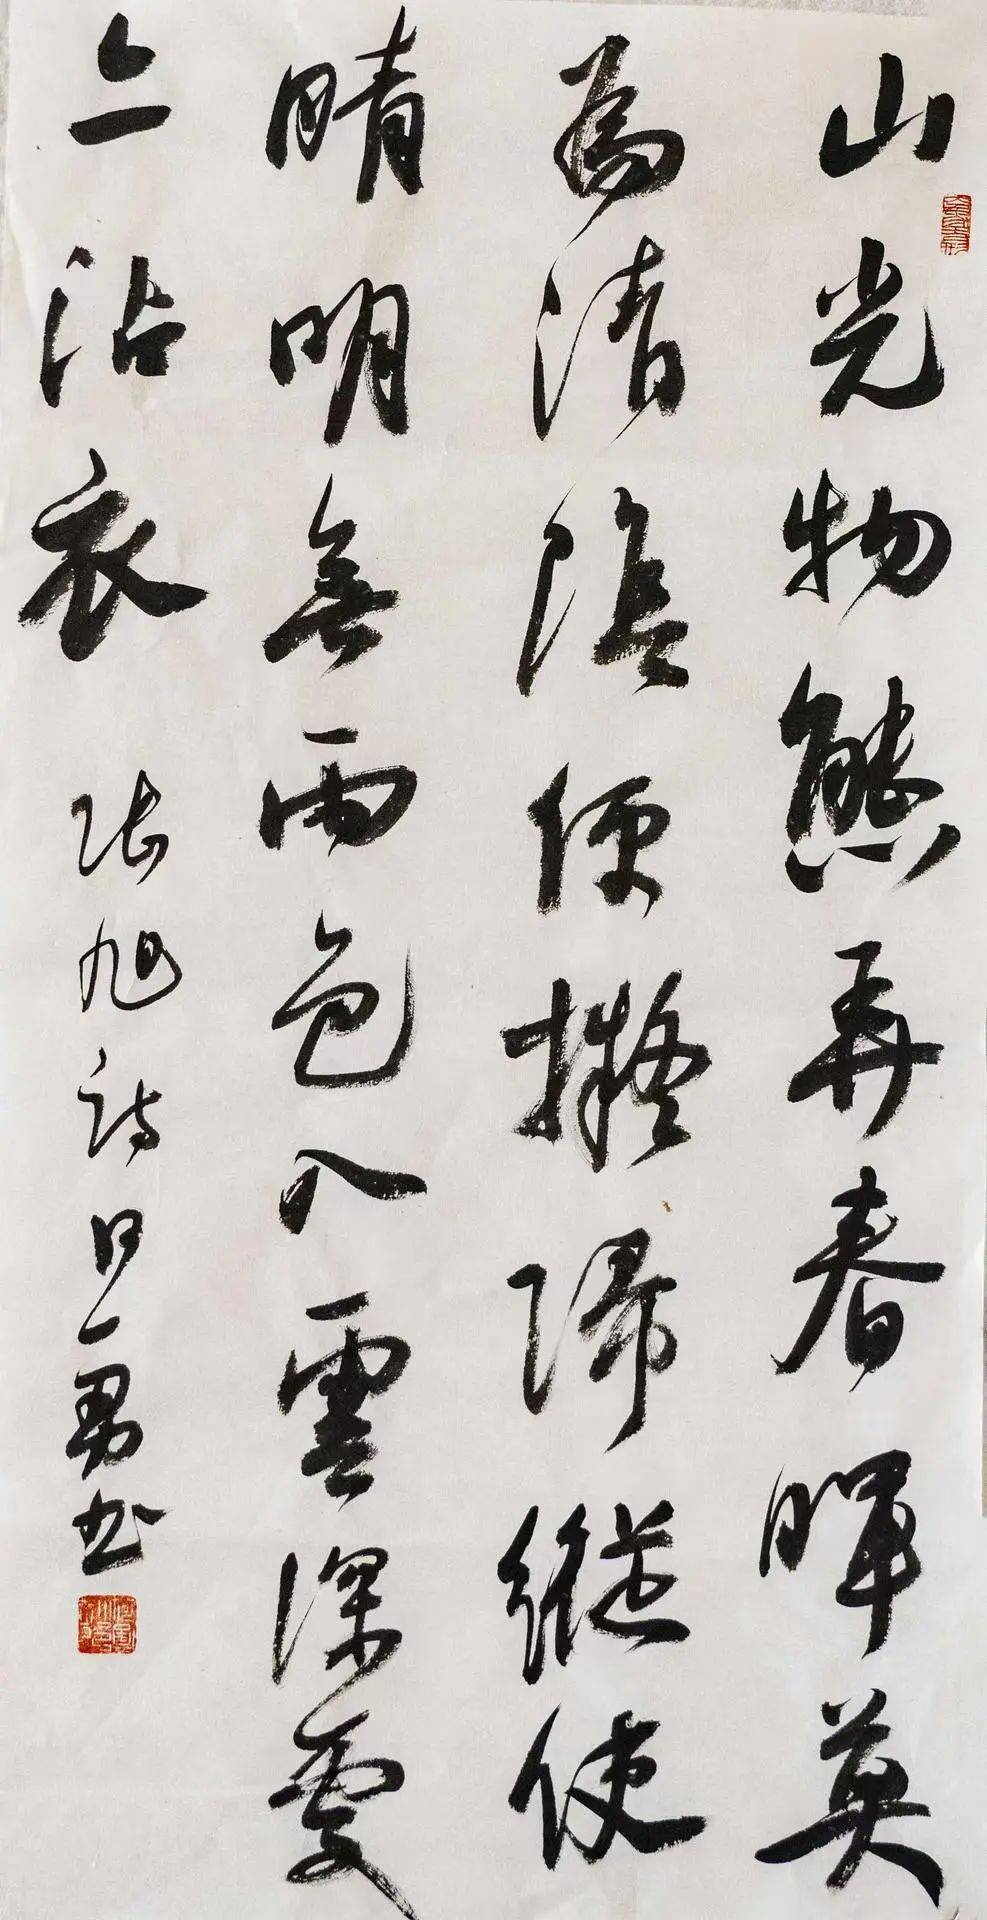 山光物態弄春暉莫
為清陰便擬歸縱使
晴明無雨色入雲深處
亦沾衣 張旭詩 書